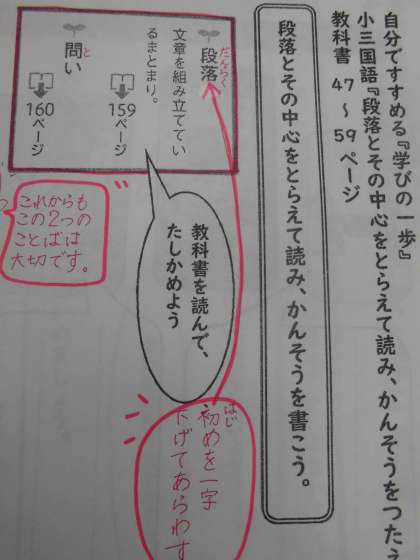 自分ですすめる『学びの一歩』
小三国語『段落とその中心をとらえて読み、かんそうをつたえ
教科書 47 ~ 59 ページ
段落とその中心をとらえて読み、かんそうを書こう。
教科書を読んで、
たしかめよう
だんらく
段落
文章を組み立ててい
るまとまり。
159
ページ
と
問い
160
ページ
はじ
初めを一字
下げてあらわす
これからも
この2つの
ことばは
大切です。